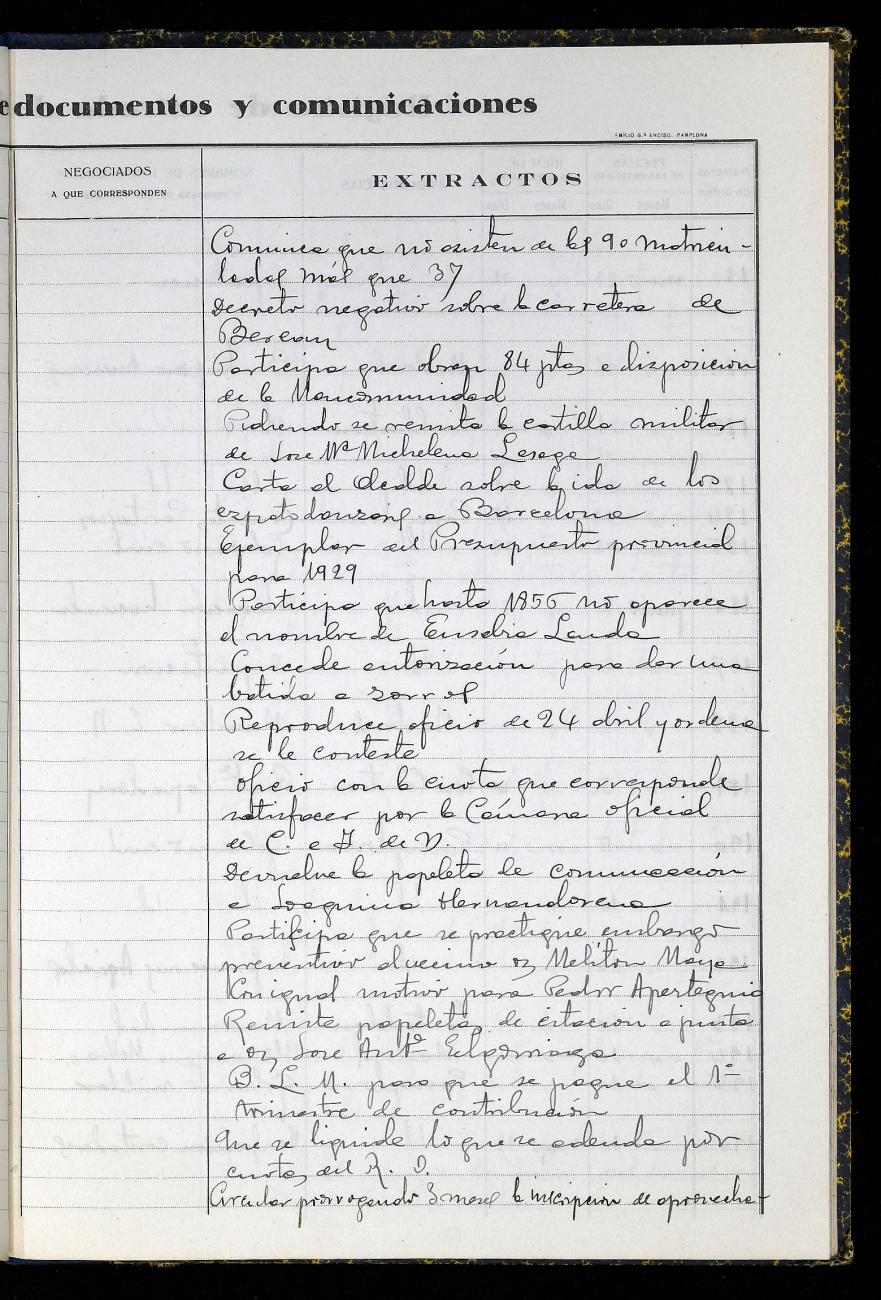 e documentos y comunicaciones
EMILIO G.ª ENCISO. PAMPLONA
NEGOCIADOS
A QUE CORRESPONDEN
EXTRACTOS
Comunica que no existen de las 90 matricu-
ladas más que 37
Decreto negativo sobre la carretera de
Bereau
Participa que obran 84 ptas a disposicion
de la Mancomunidad
Pidiendo se remita la cartilla militar
de Jose Mª Michelena Lesaga
Carta al Alcalde sobre la ida de los
ezpatadanzaris a Barcelona
Ejemplar del Presupuesto provincial
para 1929
Participa que hasta 1856 no aparece
el nombre de Eusebia Landa
Concede autorización para dar una
batida a zorros
Reproduce oficio de 24 abril y ordena
se le conteste
Oficio con la cuota que corresponde
satisfacer por la Cámara oficial
de C. e I. de N.
Devuelve la papeleta de comunicación
a Joaquina Hernandorena
Participa que se practique embargo
preventivo al vecino Dn Melitón Maya
Con igual motivo para Pedro Aperteguia
Remite papeletas de citacion a junta
a Dn Jose Antº Elgorriaga
B. L. M. para que se pague el 1º
trimestre de contribución
Que se liquide lo que se adeuda por
cuotas del R. O.
Circular prorrogando 3 meses la inscripcion de aprovecha-